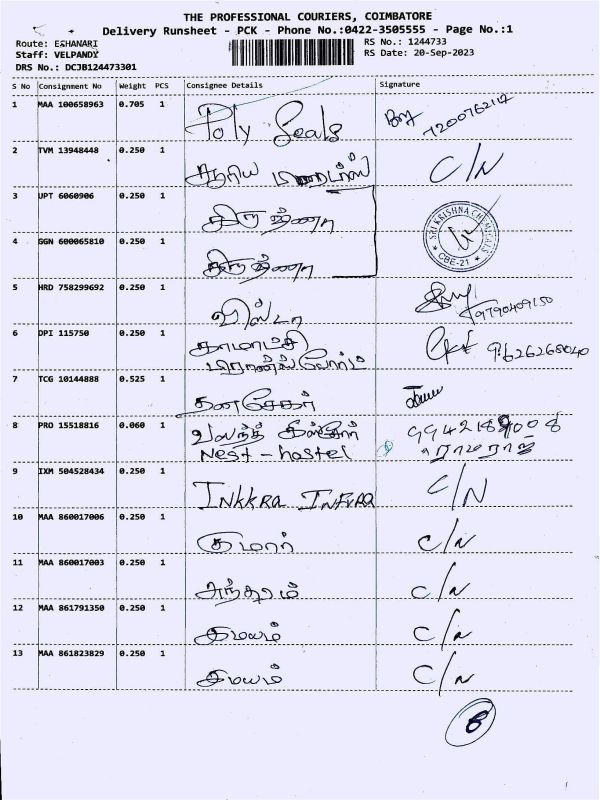 THE PROFESSIONAL COURIERS, COIMBATORE
Delivery Runsheet - PCK - Phone No.:0422-3505555 - Page No.:1
Route: ECHANARI RS No.: 1244733
Staff: VELPANDY RS Date: 20-Sep-2023
DRS No.: DCJB124473301
S No Consignment No Weight PCS Consignee Details Signature
1 MAA 100658963 0.705 1 Poly Seals 7200762117
2 TVM 13948448 0.250 1 C/N
3 UPT 6060906 0.250 1 SRI KRISHNA CHEMICALS
4 GGN 600065810 0.250 1 CBE-21
5 HRD 758299692 0.250 1 விஸ்டா 9790409150
6 DPI 115750 0.250 1 காமாட்சி 9626268040
7 TCG 10144888 0.525 1 தனசேகர்
8 PRO 15518816 0.060 1 வசந்த்
Nest - hostel ராமராஜ்
9 IXM 504528434 0.250 1 INKKRA INFRA C/N
10 MAA 860017006 0.250 1 குமார் C/N
11 MAA 860017003 0.250 1 C/N
12 MAA 861791350 0.250 1 C/N
13 MAA 861823829 0.250 1 C/N
8